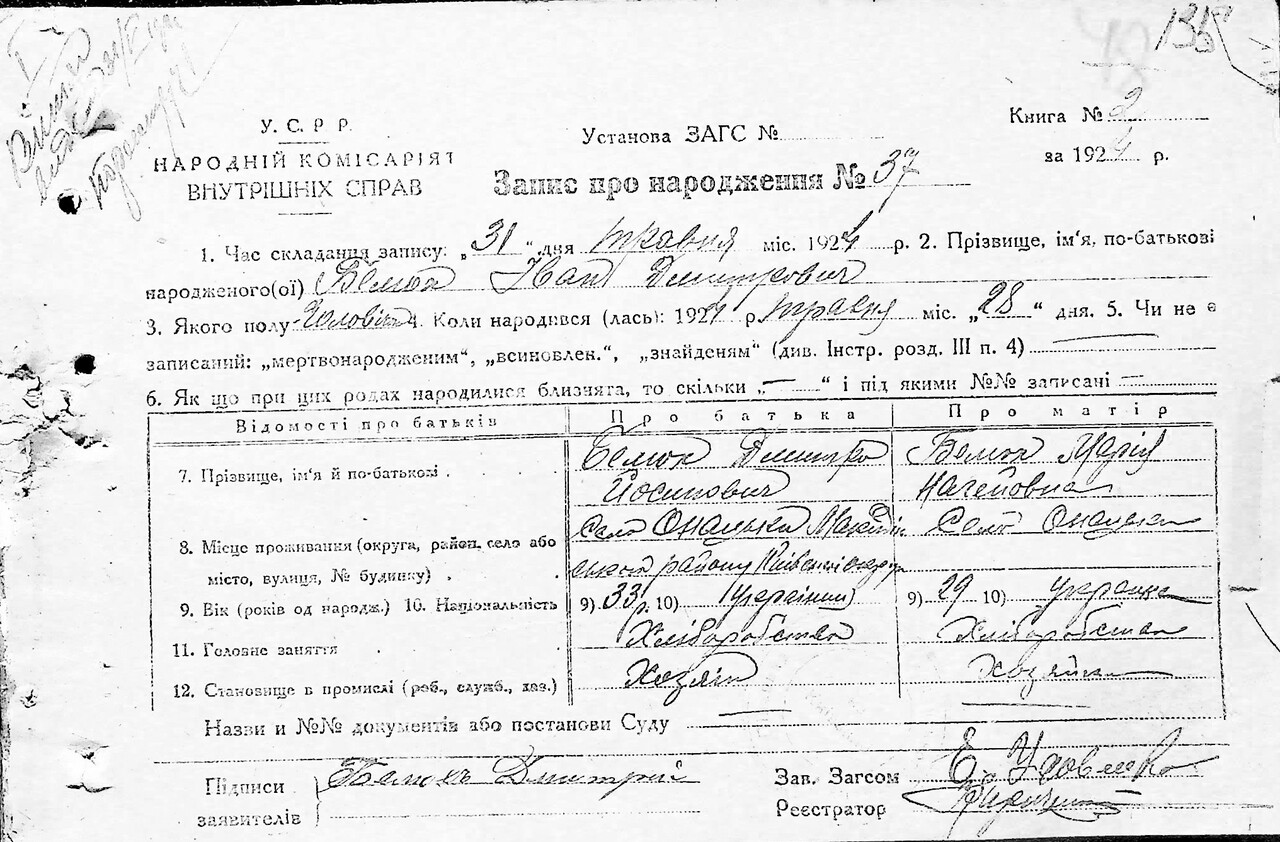 135
У. С. Р Р.
НАРОДНІЙ КОМІСАРІЯТ
ВНУТРІШНІХ СПРАВ
Установа ЗАГС №
Книга № 2
за 1924 р.
Запис про народження № 37
1. Час складання запису: „31“ дня травня міс. 1924 р. 2. Прізвище, ім'я, по-батькові
народженого(ої) Бемюк Іван Дмитрович
3. Якого полу Чоловіч 4. Коли народився (лась): 1924 р. травня міс. „28“ дня. 5. Чи не є
записаний: „мертвонародженим“, „всиновлен.“, „знайденям“ (див. Інстр. розд. III п. 4)
6. Як що при цих родах народилися близнята, то скільки „—“ і під якими №№ записані —
Відомості про батьків Про батька Про матір
7. Прізвище, ім'я й по-батькові . Бемюк Дмитро Йосипович Бемюк Марія
8. Місце проживання (округа, район, село або місто, вулиця, № будинку) . Село Опачичі району Село Опачичі
9. Вік (років од народж.) 10. Національність 9) 33 10) Українец 9) 29 10) Украінка
11. Головне заняття Хліборобство Хліборобство
12. Становище в промислі (роб., служб., хаз.) Хозяін Хозяйка
Назви и №№ документів або постанови Суду —
Підписи
заявителів
Бемюкъ Дмитрий
Зав. Загсом Е. Удовенко
Реєстратор